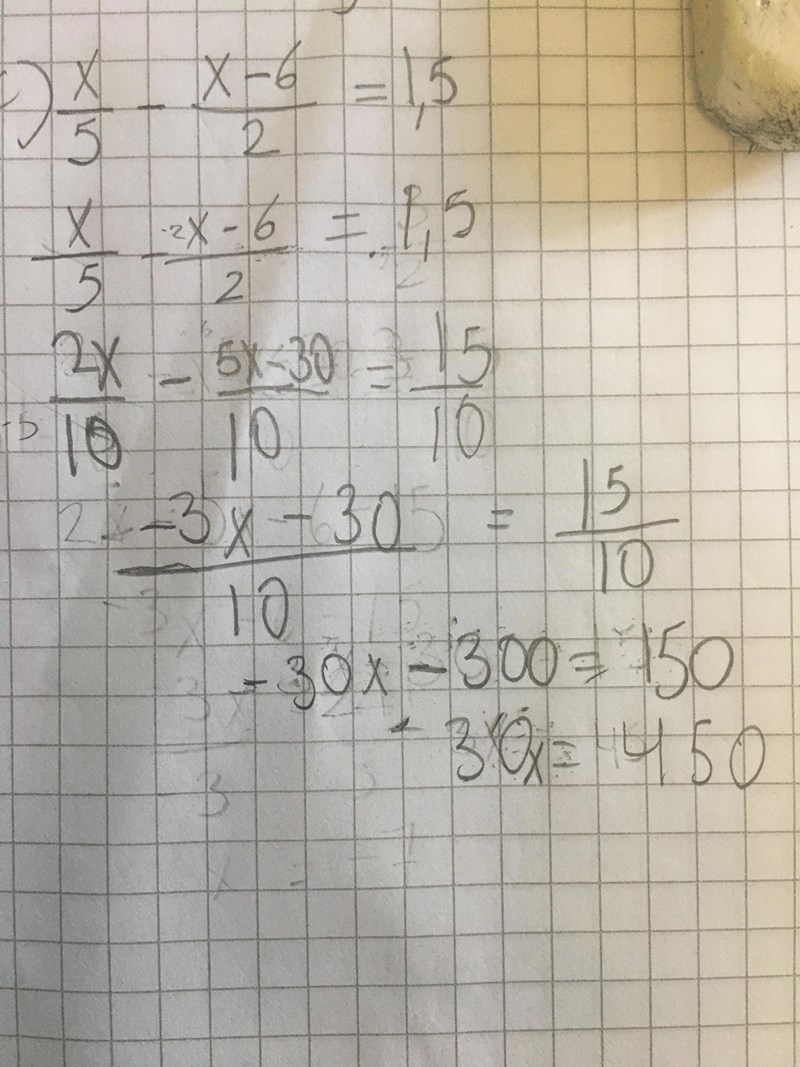 c) x/5 - (x-6)/2 = 1,5
x/5 - (-2x-6)/2 = 1,5
2x/10 - (5x-30)/10 = 15/10
(-3x-30)/10 = 15/10
-30x-300=150
-30x=450